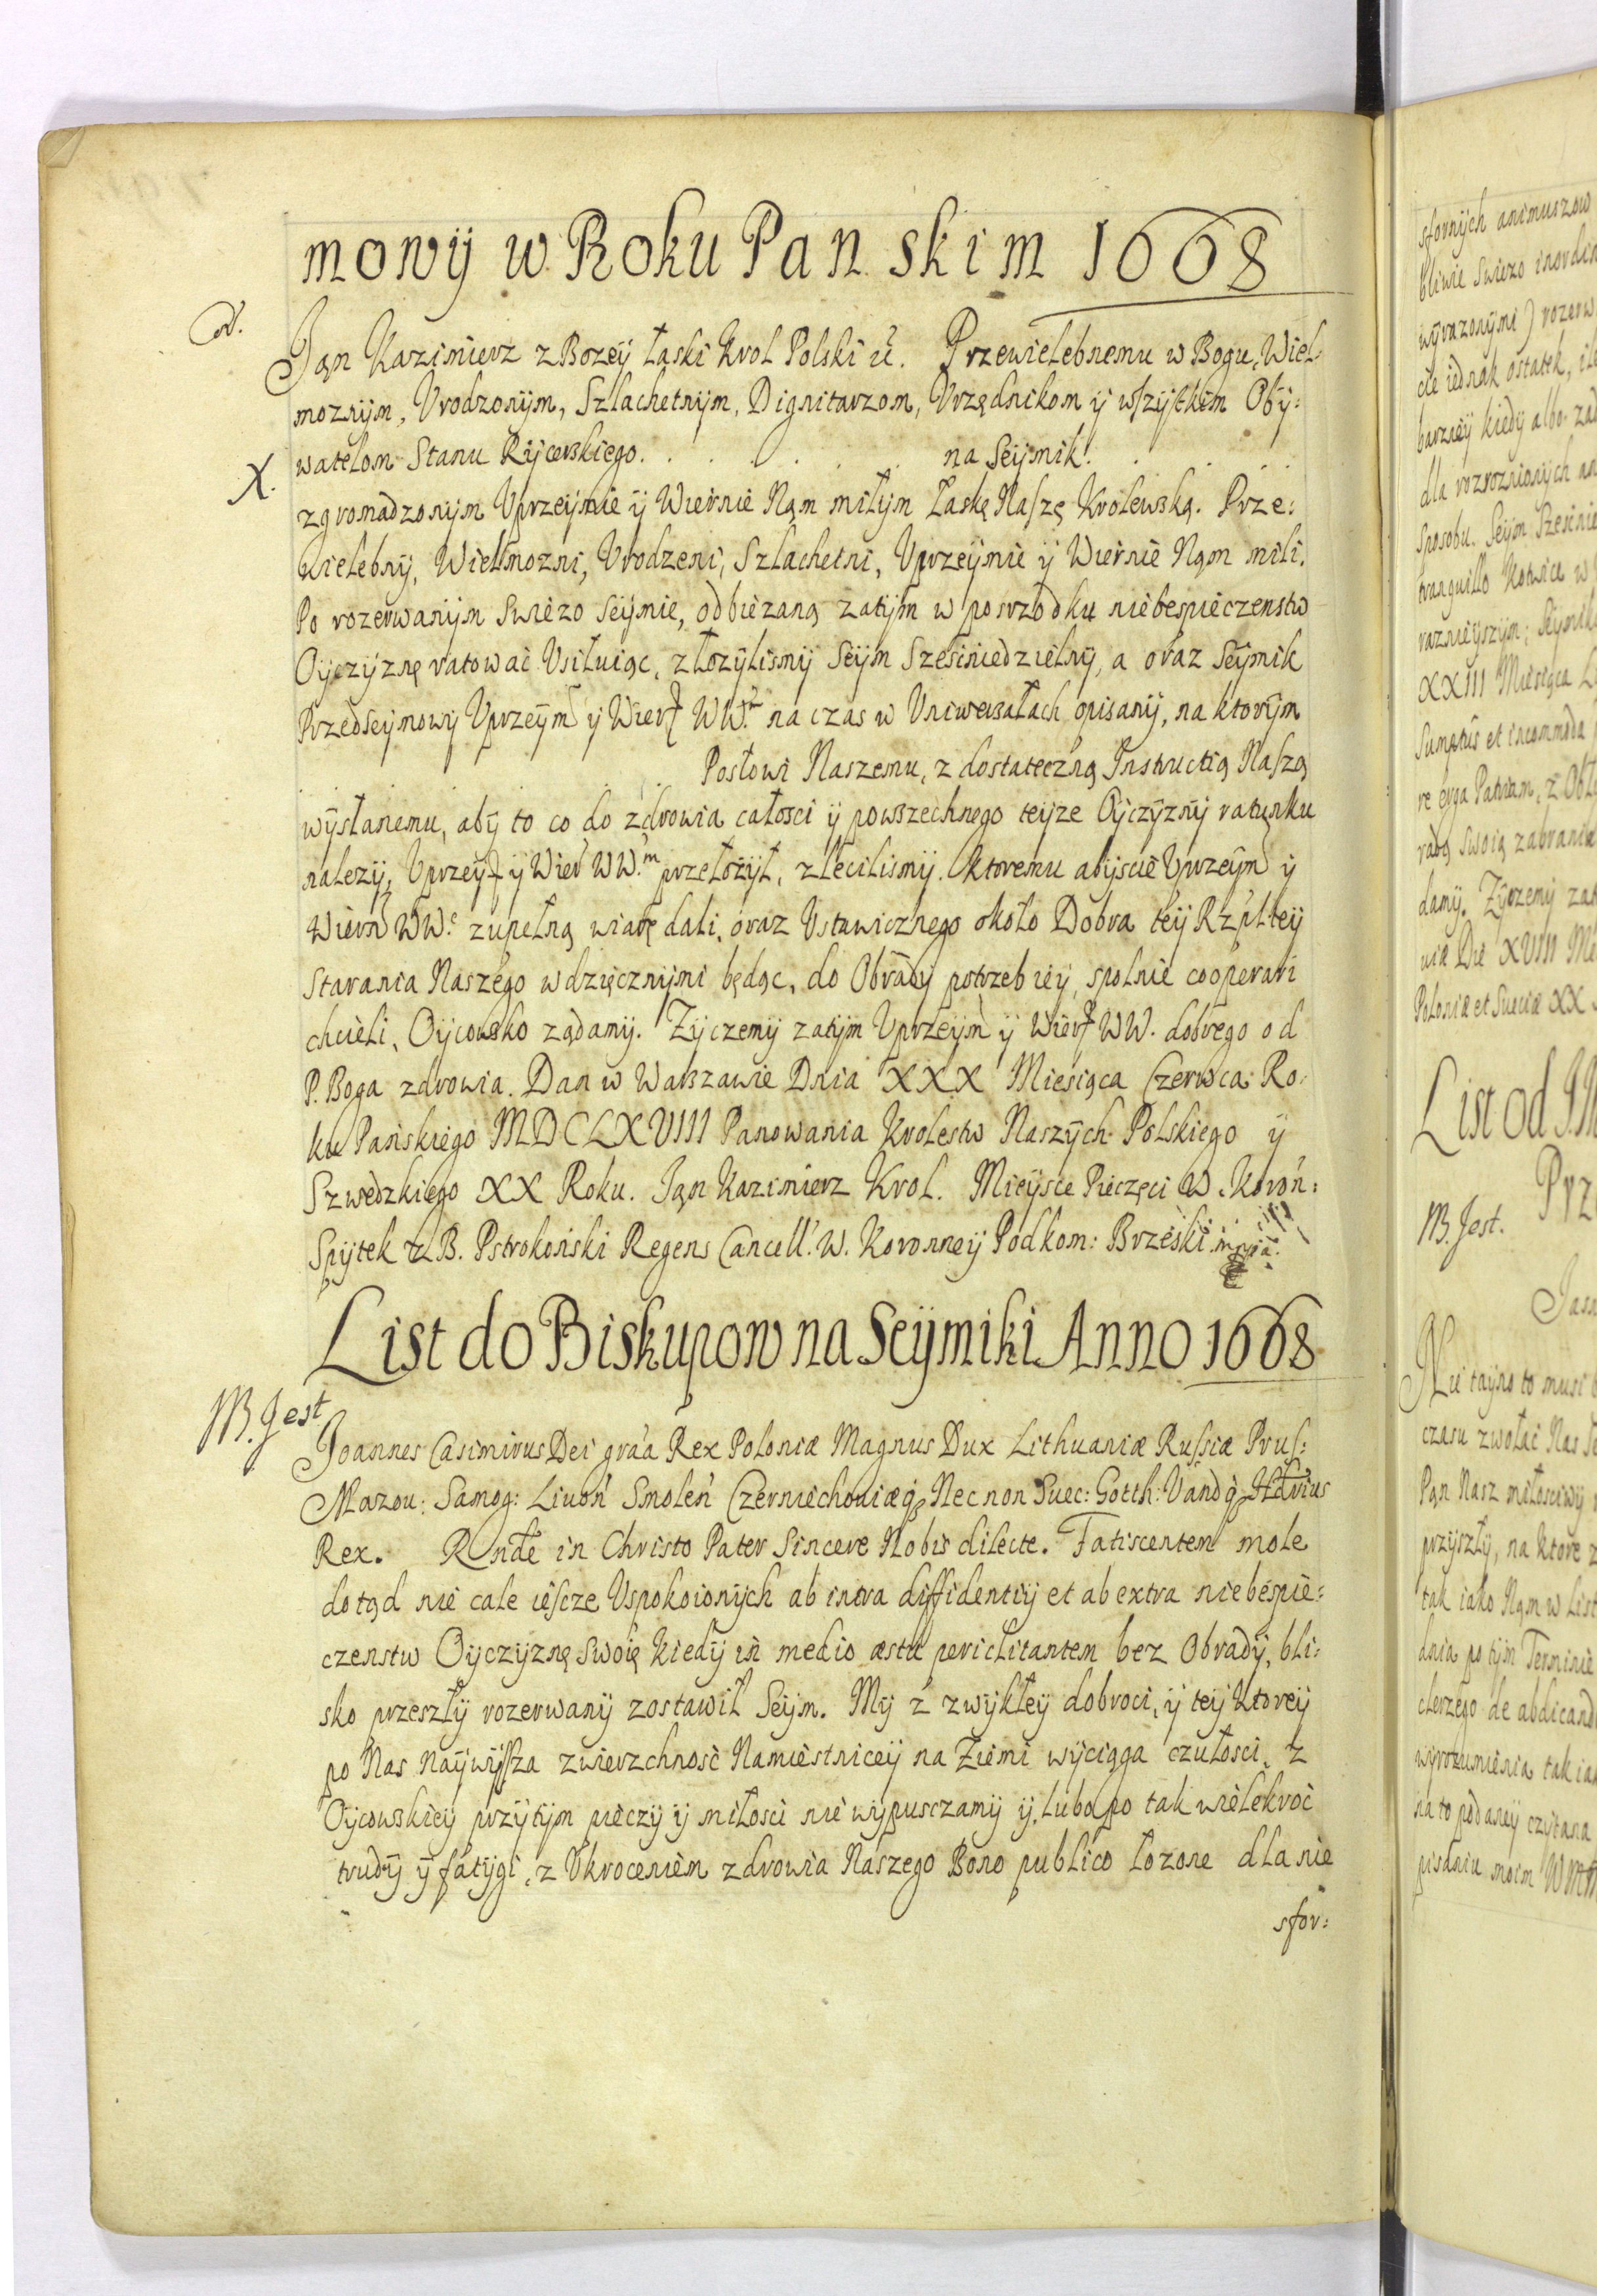 mowÿ w Roku Panskim 1668
Jan Kazimierz z Bozey łaski Krol Polski &. Przewielebnemu w Bogu, Wiel:
moznÿm, Vrodzonÿm, Szlachetnÿm, Dignitarzom, Vrzędnikom ÿ wszÿtkim Obÿ:
watelom Stanu Rÿcerskiego. . . . . . . na Seÿmik. . . . .
X.
zgromadzonÿm Uprzeÿmie ÿ Wiernie Nąm miłÿm Łaskę Naszę Krolewską. Prze:
wielebnÿ, Wielmozni, Vrodzeni, Szlachetni, Uprzeÿmie ÿ Wiernie Nąm mili.
Po rozerwanÿm Swiezo Seÿmie, odbiezaną zatÿm w posrzodku niebespieczenstw
Oÿczÿznę ratować Vsiłuiąc, złozÿlismÿ Seÿm Szescniedzielnÿ, a oraz Seÿmik
Przedseÿmowÿ Uprzeÿm ÿ Wier WW. na czas w Vniwersałach opisanÿ, na ktorÿm
. . . . Posłowi Naszemu, z dostateczną Instructią Naszą
wÿsłanemu, abÿ to co do zdrowia całosci ÿ powszechnego teÿze Oÿczÿznÿ ratunku
nalezÿ, Uprzeÿ ÿ Wier WW.m przełozÿł, zlecilismÿ. ktoremu abÿscie Uprzeÿm ÿ
Wiern WW. zupełną wiarę dali, oraz Vstawicznego około Dobra teÿ Rzpltey
starania Naszego wdzięcznÿmi będąc, do Obradÿ potrzebneÿ, spolnie cooperari
chcieli, Oÿcowsko ządamÿ. Zÿczemÿ zatÿm Uprzeÿm ÿ Wier WW. dobrego od
P. Boga zdrowia. Dan w Warszawie Dnia XXX Miesiąca Czerwca Ro:
ku Pańskiego MDCLXVIII Panowania Krolestw Naszÿch Polskiego ÿ
Szwedzkiego XX Roku. Jąn Kazimierz Krol. Mieÿsce Pieczęci W. Koron:
Spÿtek z B. Pstrokoński Regens Cancell. W. Koronneÿ Podkom: Brzeski mpria.
List do Biskupow na Seÿmiki Anno 1668
NB. Jest
Joannes Casimirus Dei gra'a Rex Poloniæ Magnus Dux Lithuaniæ Russiæ Prus:
Mazou: Samog: Livoń Smoleń Czerniechoviæq Necnon Suec: Gotth: Vandq Hdrius
Rex. Rnde in Christo Pater Sincere Nobis dilecte. Fatiscentem mole
dotąd nie cale iescze Uspokoionÿch ab intra diffidentiÿ et ab extra niebespie:
czenstw Oÿczÿznę swoię kiedÿ in medio æstu periclitantem bez Obradÿ, bli:
sko przeszłÿ rozerwanÿ zostawił Seÿm. Mÿ z zwÿkłeÿ dobroci, ÿ teÿ ktoreÿ
po Nas Naÿwÿssza zwierzchność Namiestniceÿ na Ziemi wÿciąga czułosci, z
Oÿcowskieÿ przÿtÿm pieczÿ ÿ miłosci nie wÿpusczamÿ ÿ. lubo po tak wielekroć
trudÿ ÿ fatÿgi, z Ukroceniem zdrowia Naszego Bono publico łozone dla nie
sfor:
sfornÿch animuszow
bliwie Swiezo
wÿrazonÿmi) rozerw
cie iednak ostatek, ile
barzieÿ kiedÿ albo
dla rozroznionÿch
Sposobu. Seÿm Szescnie
tranquillo Kotwice w
raznieÿszÿm, Seÿmik
XXIII Miesiąca
Sumptus et incommoda
re erga Patriam, z
radą swoią
damÿ. Zÿczemÿ zat
Die XVIII
Poloniæ et Sueciæ XX
List od
Prz
NB. Jest.
Jasn
Nie taÿno to musi
czasu zwołać Nas
Pąn Nasz miłosciwÿ
przÿszłÿ, na ktore z
tak iako Nąm w List
dnia po tÿm Terminie
de abdicand
wÿrozumienia tak iak
na to podaneÿ czÿtana
pisaniu moim